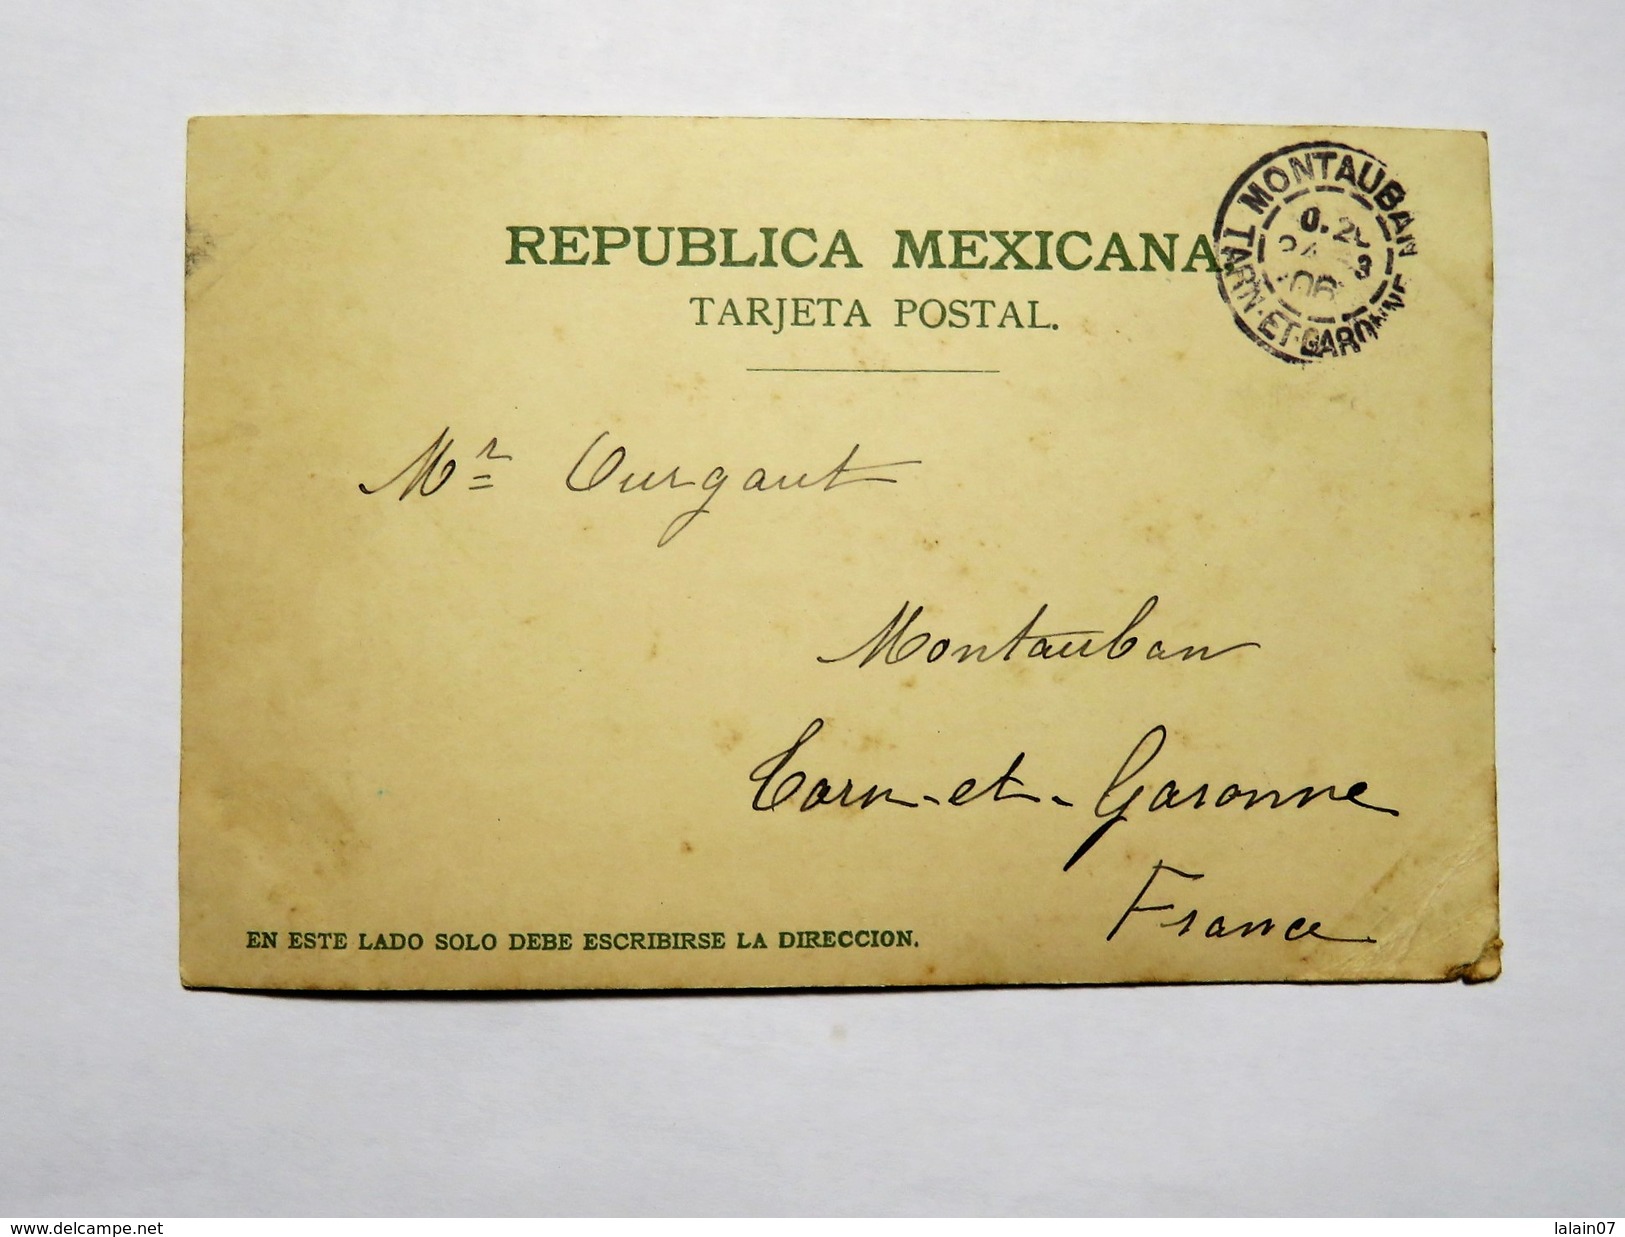 REPUBLICA MEXICANA
TARJETA POSTAL.
MONTAUBAN
TARN-ET-GARONNE
Mr Ourgaut
Montauban
Tarn-et-Garonne
France
EN ESTE LADO SOLO DEBE ESCRIBIRSE LA DIRECCION.
www.delcampe.net
lalain07